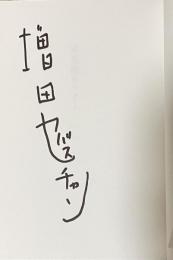 増田セバスチャン